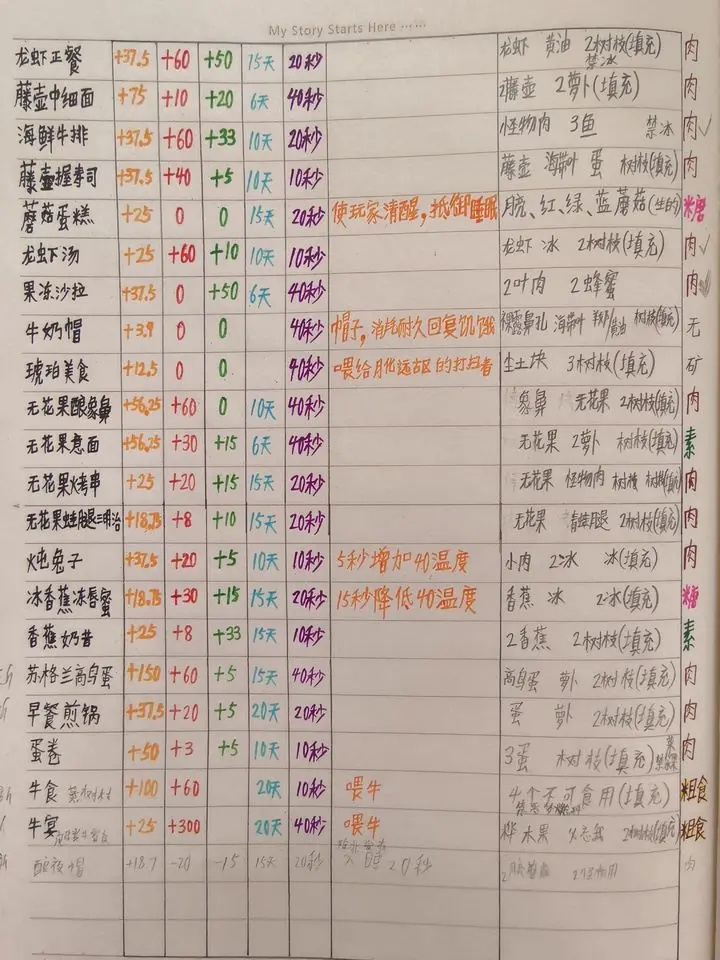 My Story Starts Here ……
龙虾正餐 +37.5 +60 +50 15天 20秒 龙虾 黄油 2树枝(填充) 禁冰 肉
藤壶中细面 +75 +10 +20 6天 40秒 2藤壶 2萝卜(填充) 肉
海鲜牛排 +37.5 +60 +33 10天 20秒 怪物肉 3鱼 禁冰 肉✓
藤壶握寿司 +37.5 +40 +5 10天 10秒 藤壶 海带叶 蛋 树枝(填充) 肉
蘑菇蛋糕 +25 0 0 15天 20秒 使玩家清醒，抵御睡眠 月亮、红、绿、蓝蘑菇(生的)
龙虾汤 +25 +60 +10 10天 10秒 龙虾 冰 2树枝(填充) 肉✓
果冻沙拉 +37.5 0 +50 6天 40秒 2叶肉 2蜂蜜 肉
牛奶帽 +3.9 0 0 40秒 帽子，消耗耐久回复饥饿 裸露鼻孔 海带叶 黄油 树枝(填充) 无
琥珀美食 +12.5 0 0 40秒 喂给月化远古区的打扫者 尘土块 3树枝(填充) 矿
无花果酿象鼻 +56.25 +60 0 10天 40秒 象鼻 无花果 2树枝(填充) 肉
无花果意面 +56.25 +30 +15 6天 40秒 无花果 2萝卜 树枝(填充) 素
无花果烤串 +25 +20 +15 15天 20秒 无花果 怪物肉 树枝 树枝(填充) 肉
无花果蛙腿三明治 +18.75 +8 +10 15天 20秒 无花果 青蛙腿 2树枝(填充) 肉
炖兔子 +37.5 +20 +5 10天 10秒 5秒增加40温度 小肉 2冰 冰(填充) 肉
冰香蕉冻唇蜜 +18.75 +30 +15 15天 20秒 15秒降低40温度 香蕉 冰 2冰(填充) 糖
香蕉奶昔 +25 +8 +33 15天 10秒 2香蕉 2树枝(填充) 素
苏格兰高鸟蛋 +150 +60 +5 15天 40秒 高鸟蛋 萝卜 2树枝(填充) 肉
早餐煎锅 +37.5 +20 +5 20天 20秒 蛋 萝卜 2树枝(填充) 肉
蛋卷 +50 +3 +5 10天 10秒 3蛋 树枝(填充) 肉
牛食 +100 +60 20天 10秒 喂牛 4个不可食用(填充) 粗食
牛宴 +25 +300 20天 40秒 喂牛 桦木果 2树枝(填充) 粗食
+18.7 -20 -15 15天 20秒 20秒 肉